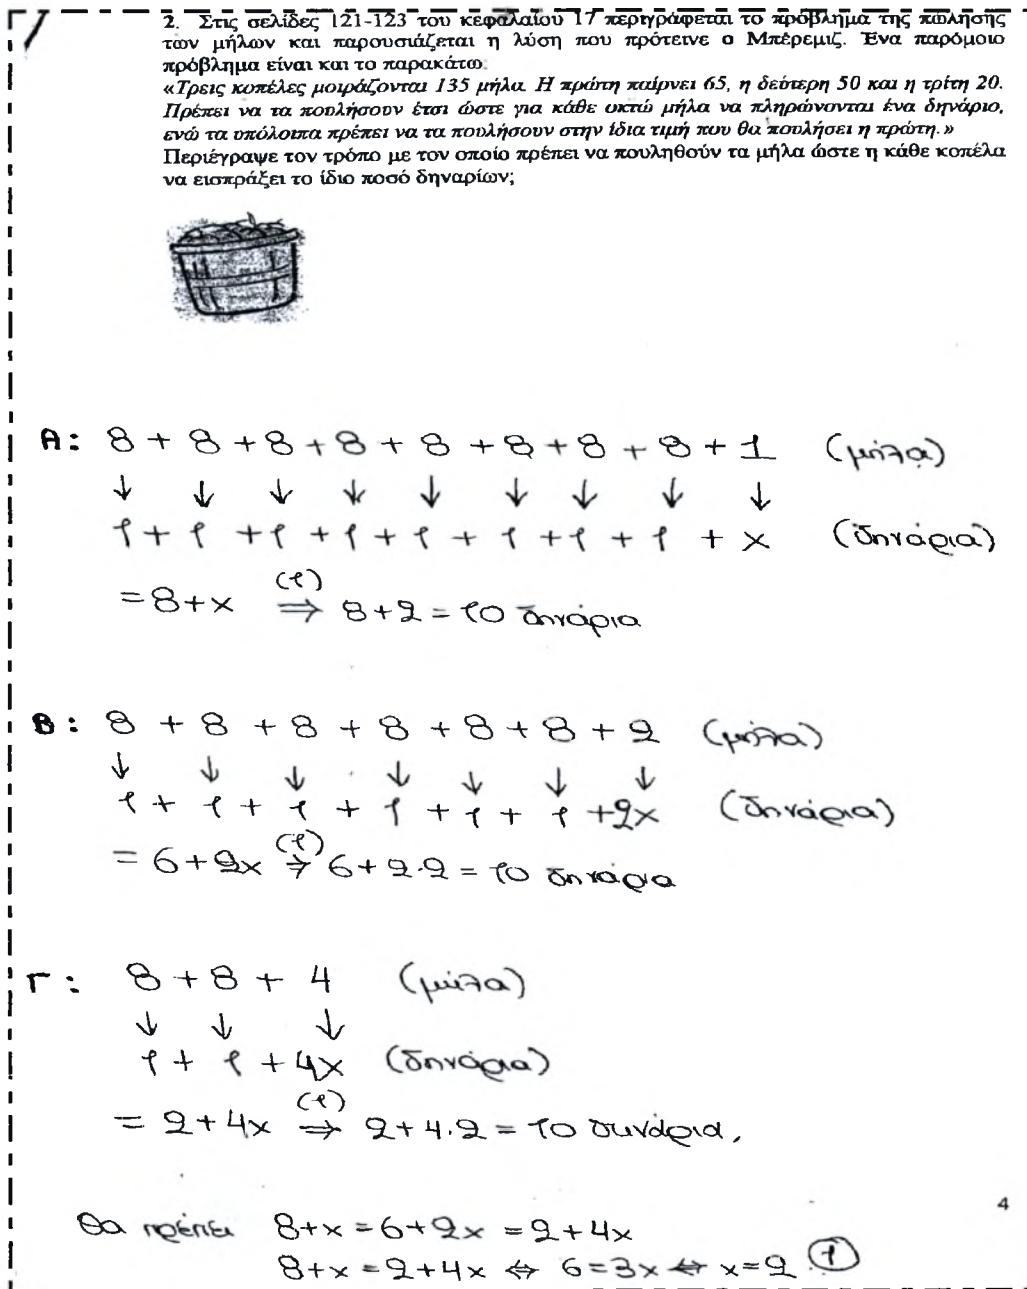 2. Στις σελίδες 121-123 του κεφαλαίου 17 περιγράφεται το πρόβλημα της πώλησης
των μήλων και παρουσιάζεται η λύση που πρότεινε ο Μπέρεμιζ. Ένα παρόμοιο
πρόβλημα είναι και το παρακάτω:
«Τρεις κοπέλες μοιράζονται 135 μήλα. Η πρώτη παίρνει 65, η δεύτερη 50 και η τρίτη 20.
Πρέπει να τα πουλήσουν έτσι ώστε για κάθε οκτώ μήλα να πληρώνονται ένα δηνάριο,
ενώ τα υπόλοιπα πρέπει να τα πουλήσουν στην ίδια τιμή που θα πουλήσει η πρώτη.»
Περιέγραψε τον τρόπο με τον οποίο πρέπει να πουληθούν τα μήλα ώστε η κάθε κοπέλα
να εισπράξει το ίδιο ποσό δηναρίων;
Α: 8 + 8 + 8 + 8 + 8 + 8 + 8 + 8 + 1 (μήλα)
↓ ↓ ↓ ↓ ↓ ↓ ↓ ↓ ↓
1 + 1 + 1 + 1 + 1 + 1 + 1 + 1 + x (δηνάρια)
= 8 + x (1) ⇒ 8 + 2 = 10 δηνάρια
Β: 8 + 8 + 8 + 8 + 8 + 8 + 2 (μήλα)
↓ ↓ ↓ ↓ ↓ ↓ ↓
1 + 1 + 1 + 1 + 1 + 1 + 2x (δηνάρια)
= 6 + 2x (1) ⇒ 6 + 2·2 = 10 δηνάρια
Γ: 8 + 8 + 4 (μήλα)
↓ ↓ ↓
1 + 1 + 4x (δηνάρια)
= 2 + 4x (1) ⇒ 2 + 4·2 = 10 δηνάρια,
4
Θα πρέπει 8 + x = 6 + 2x = 2 + 4x
8 + x = 2 + 4x ⇔ 6 = 3x ⇔ x = 2 (1)